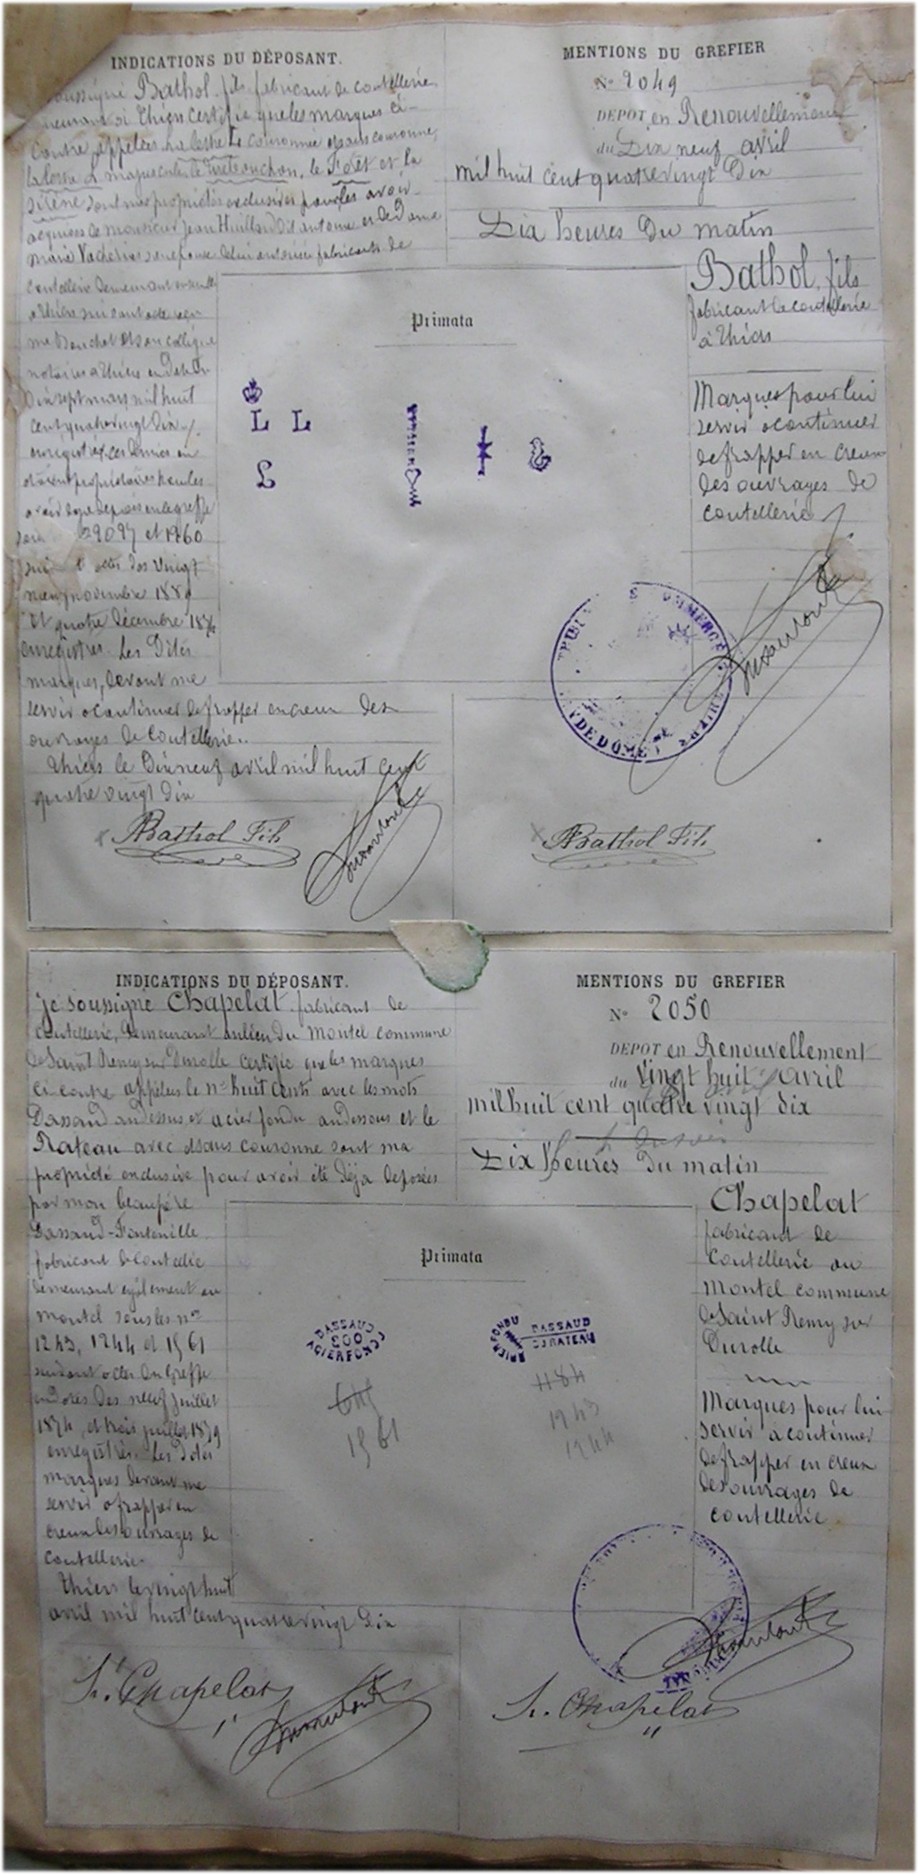 INDICATIONS DU DÉPOSANT.
soussigné Bathol fils fabricant de coutellerie
demeurant à Thiers certifie que les marques ci
contre appelées La lettre L couronnée et sans couronne,
la lettre L majuscule le tirebouchon, le Foret et la
sirène sont mes propriétés exclusives pour les avoir
acquises de monsieur Jean Huillard dit antoine et de Dame
marie Vacherias son épouse de lui autorisée fabricants de
coutellerie demeurant ensemble
à Thiers suivant acte reçu
me Bouchet et son collègue
notaires à Thiers en date du
Dix sept mars mil huit
cent quatre vingt Dix
enregistré, ces derniers en
étaient propriétaires pour les
avoir déposées en ce greffe
29097 et 1960
suivt actes des Vingt
neuf novembre 188
et quatre décembre 1874
enregistrés. Les Dites
marques devant me
servir à continuer de frapper en creux des
ouvrages de Coutellerie.
Thiers le Dix neuf avril mil huit cent
quatre vingt Dix
ABathol Fils
MENTIONS DU GREFIER
No 2049
DEPOT en Renouvellement
du Dix neuf avril
mil huit cent quatre vingt Dix
Dix heures Du matin
Primata
L L
L
Bathol, fils
fabricant de coutellerie
à Thiers
Marques pour lui
servir à continuer
de frapper en creux
des ouvrages de
coutellerie
TRIBUNAL DE COMMERCE
THIERS
PUY DE DOME
ABathol Fils.
INDICATIONS DU DÉPOSANT.
je soussigné Chapelat fabricant de
coutellerie, demeurant au lieu Du Montel commune
de Saint Remy sur Durolle certifie que les marques
ci contre appelées le no huit cents avec les mots
Dassaud au dessus et acier fondu au dessous et le
Rateau avec et sans couronne sont ma
propriété exclusive pour avoir été déjà déposées
par mon beau père
Dassaud-Fontenille
fabricant de coutellerie
demeurant également au
montel sous les nos
1243, 1244 et 1561
suivant actes du Greffe
en dates des neuf juillet
1874, et trois juillet 1879
enregistrés. Les Dites
marques devant me
servir à frapper en
creux des ouvrages de
coutellerie.
Thiers le vingt huit
avril mil huit cent quatre vingt dix
Chapelat
MENTIONS DU GREFIER
No 2050
DEPOT en Renouvellement
du Vingt huit avril
mil huit cent quatre vingt dix
Dix heures Du matin
Primata
DASSAUD
800
ACIER FONDU
ACIER FONDU
DASSAUD
AU RATEAU
1561
1184
1243
1244
Chapelat
fabricant de
Coutellerie au
Montel commune
de Saint Remy sur
Durolle
Marques pour lui
servir à continuer
de frapper en creux
des ouvrages de
coutellerie.
Chapelat